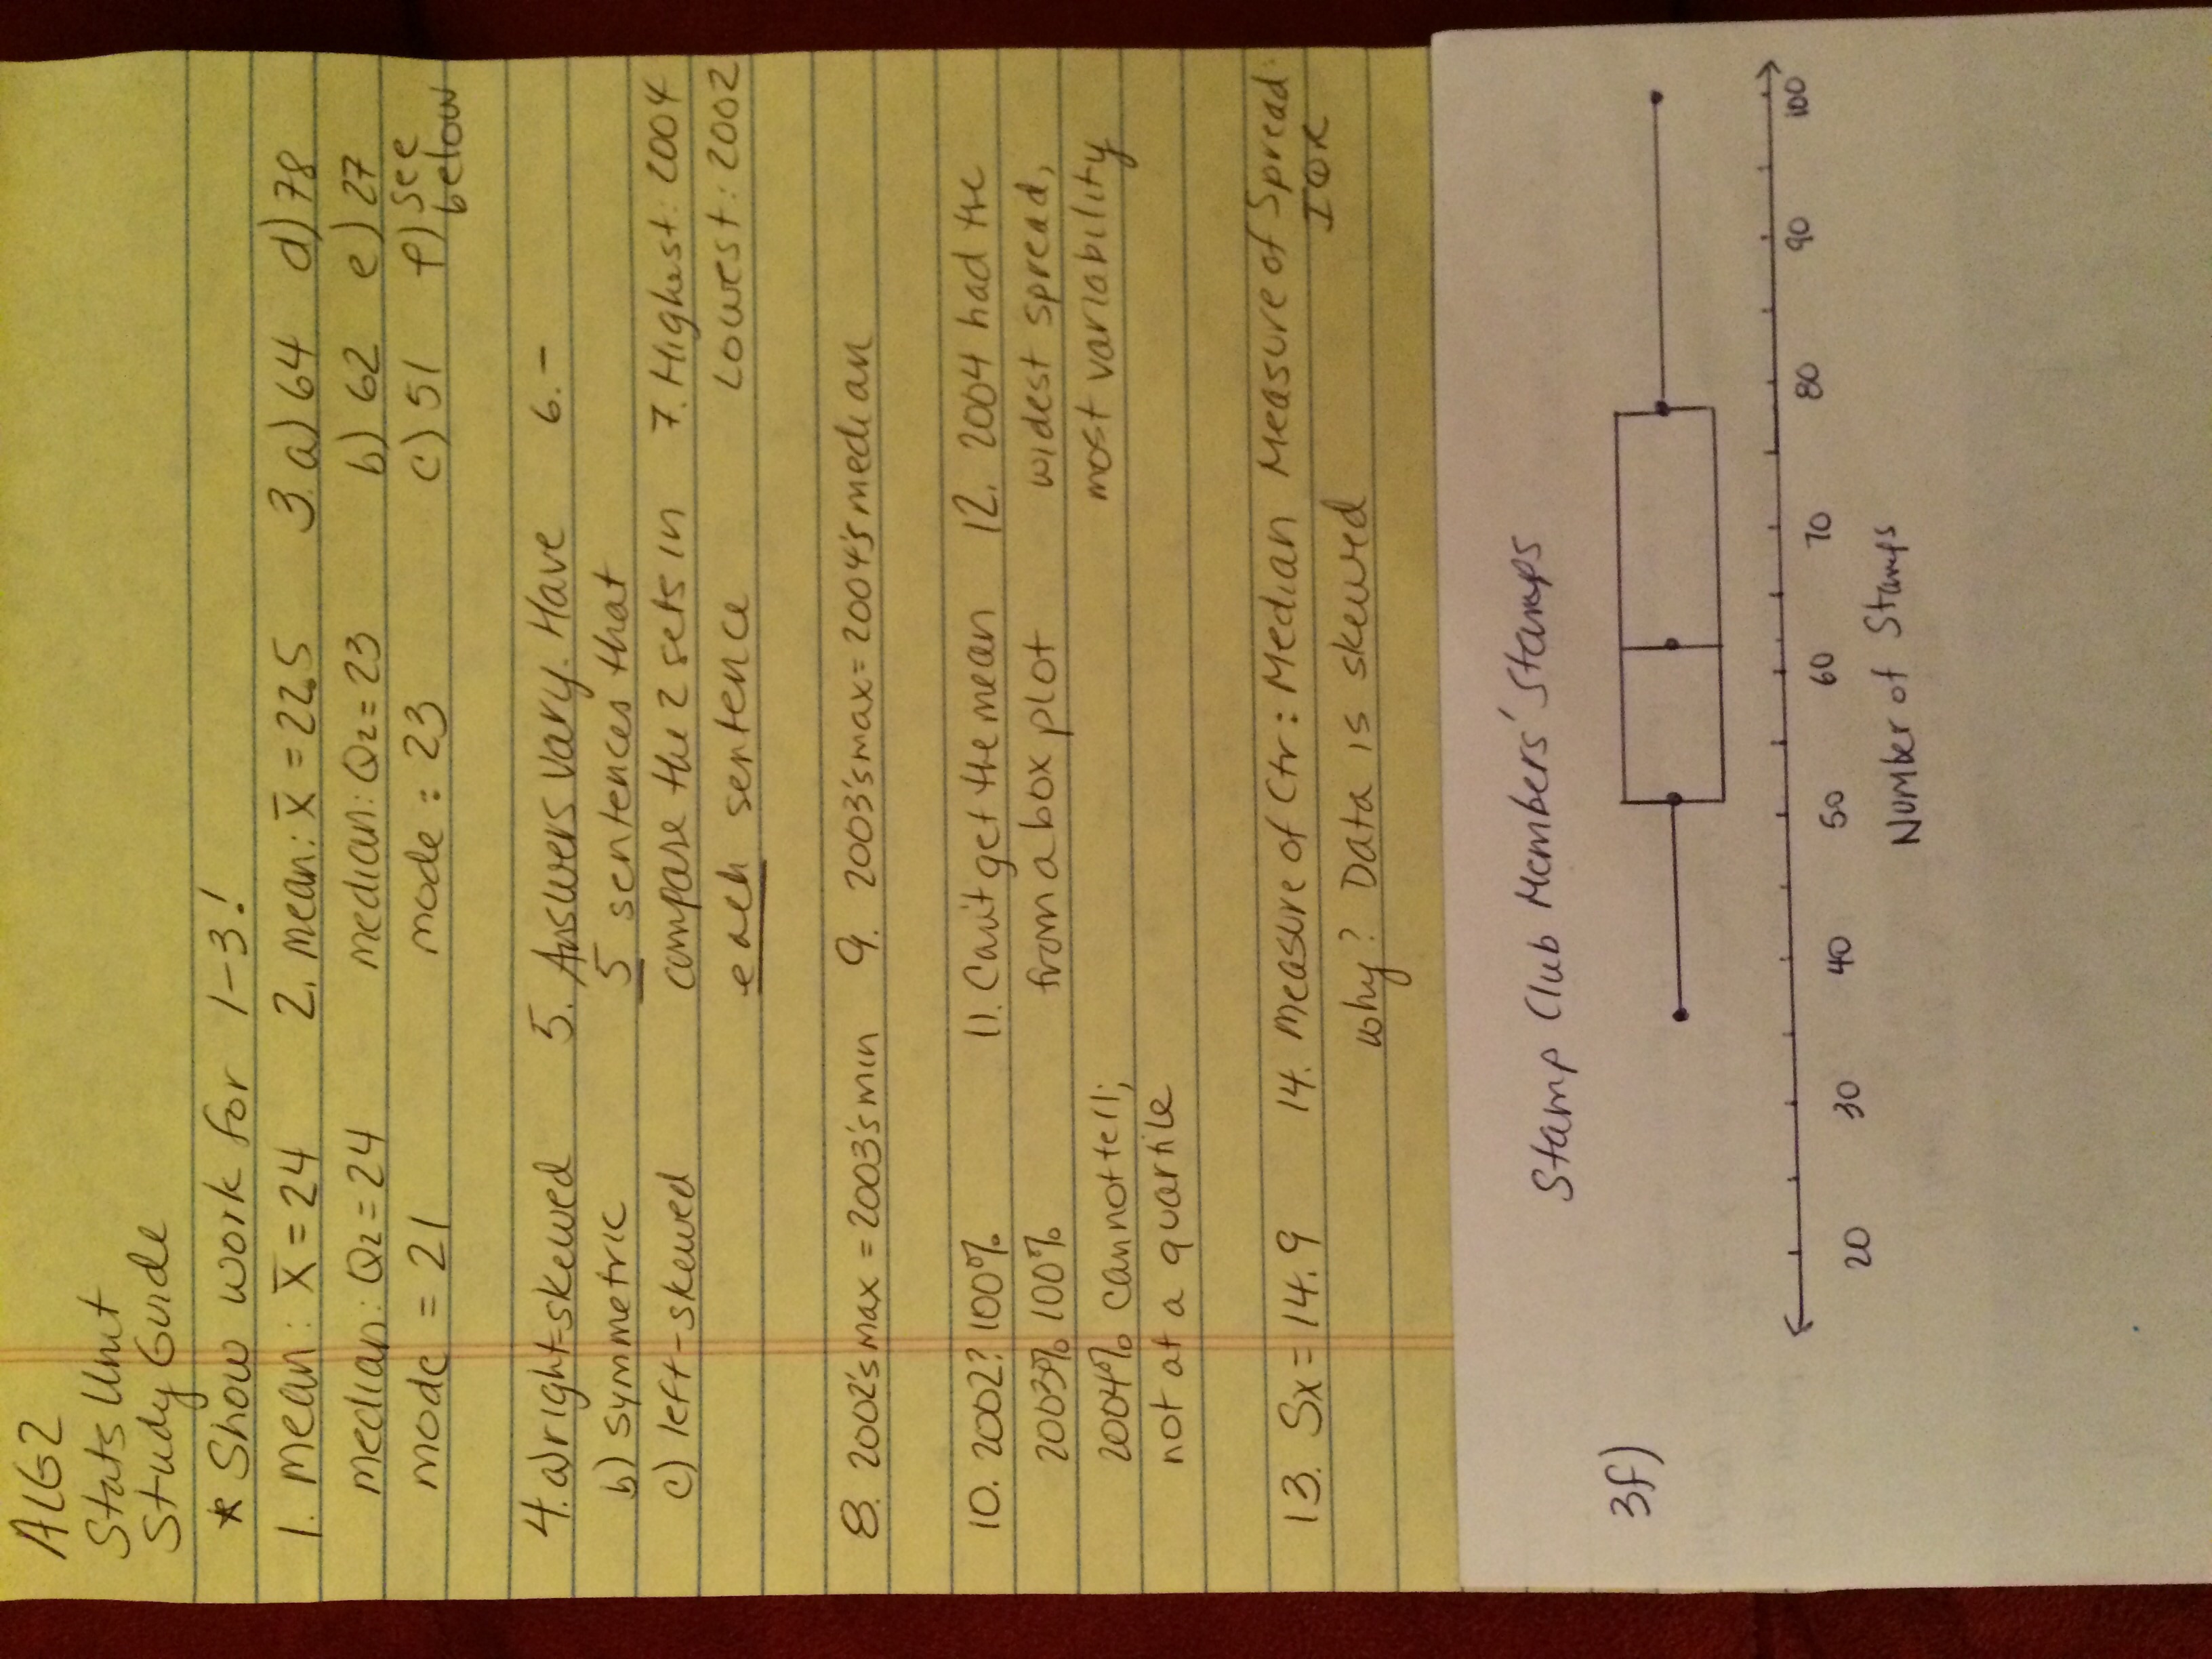 ALG2
Stats Unit
Study Guide
* Show work for 1-3!
1. mean: x̄ = 24 2. mean: x̄ = 22.5 3. a) 64 d) 78
median: Q2 = 24 median: Q2 = 23 b) 62 e) 27
mode = 21 mode: 23 c) 51 f) see below
4. a) right-skewed 5. Answers vary. Have 6. -
b) symmetric 5 sentences that
c) left-skewed compare the 2 sets in 7. Highest: 2004
each sentence Lowest: 2002
8. 2002's max = 2003's min 9. 2003's max = 2004's median
10. 2002? 100% 11. Can't get the mean 12. 2004 had the
2003% 100% from a box plot widest spread,
2004% cannot tell; most variability
not at a quartile
13. Sx = 14.9 14. Measure of Ctr: Median Measure of Spread: IQR
why? Data is skewed
3f)
Stamp Club Members' Stamps
20 30 40 50 60 70 80 90 100
Number of Stamps